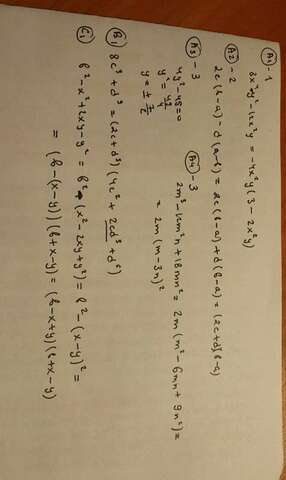 A1 - 1
8x⁴y² - 12x²y = -4x²y(3 - 2x²y)
A2 - 2
2c(b-a) - d(a-b) = 2c(b-a) + d(b-a) = (2c+d)(b-a)
A3 - 3
4y² - 49 = 0
y² = 49/4
y = ± 7/2
A4 - 3
2m³ - 12m²n + 18mn² = 2m(m² - 6mn + 9n²) =
= 2m(m-3n)²
B1
8c³ + d⁹ = (2c+d³)(4c² + 2cd³ + d⁶)
C1
b² - x² + 2xy - y² = b² - (x² - 2xy + y²) = b² - (x-y)² =
= (b - (x-y))(b + x-y) = (b-x+y)(b+x-y)